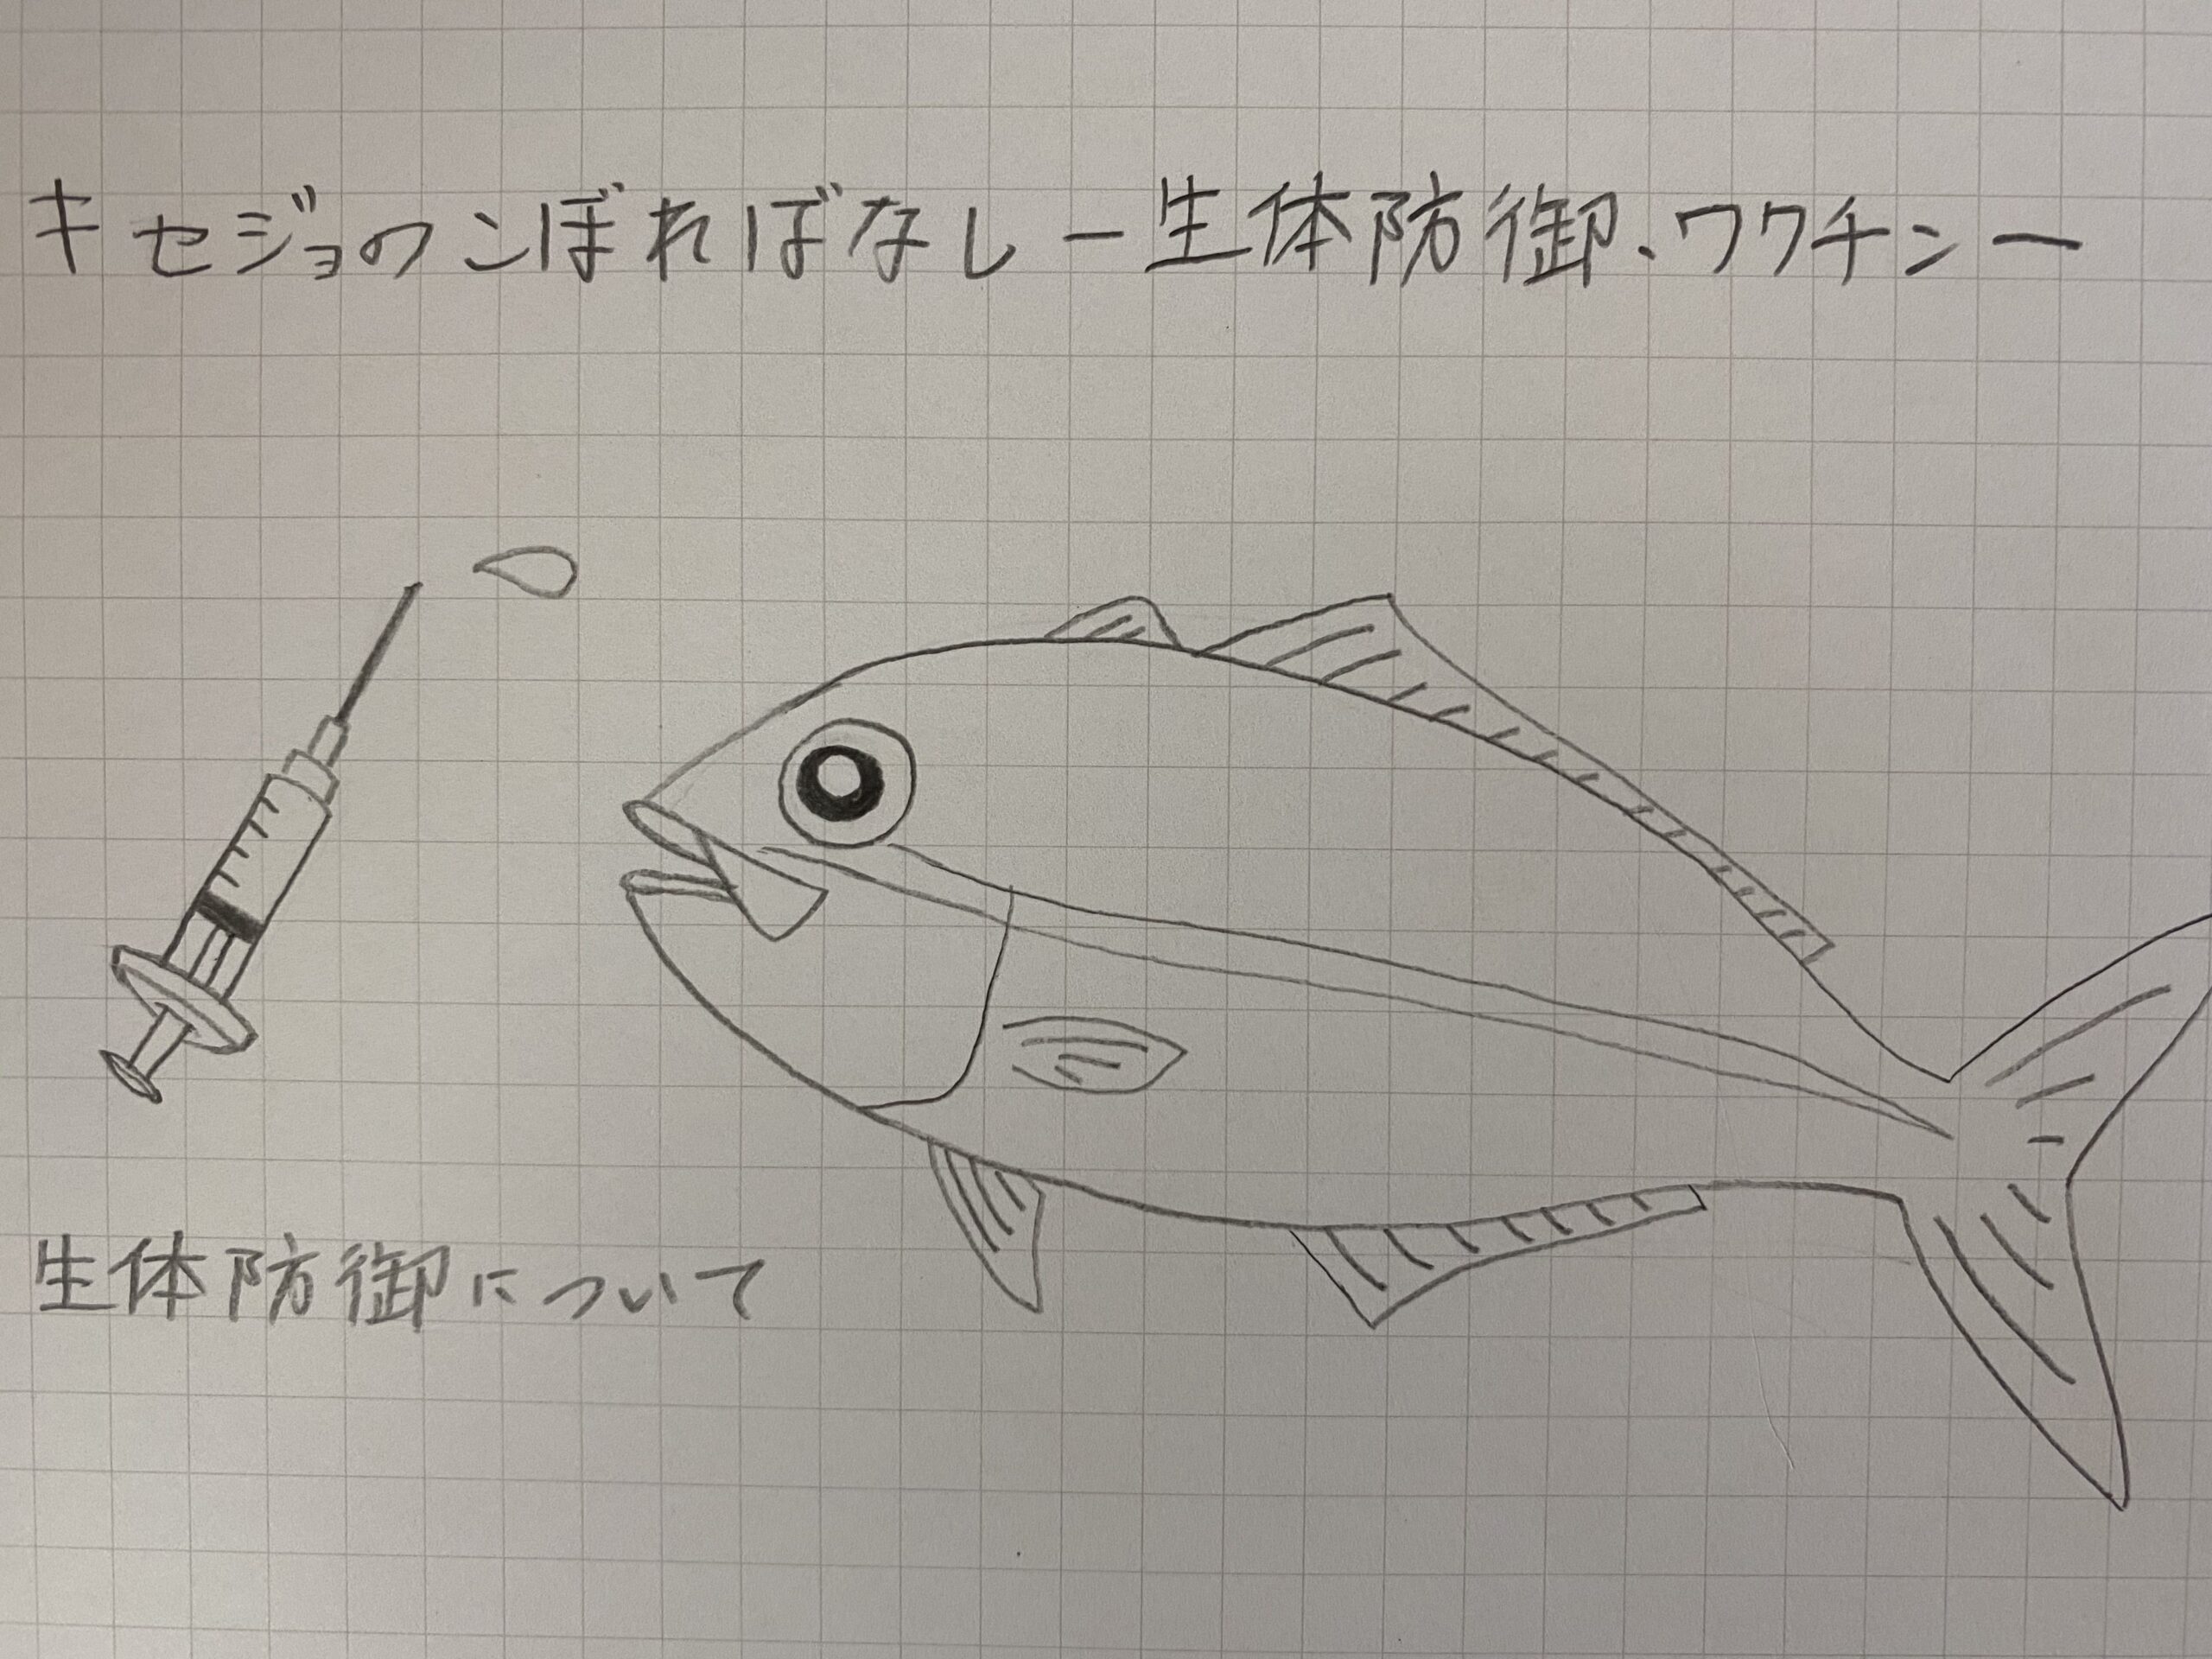 キセジョのこぼればなしー生体防御、ワクチンー
生体防御について